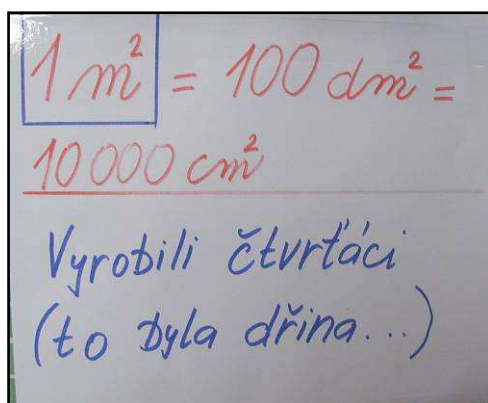 1 m² = 100 dm² =
10 000 cm²
Vyrobili čtvrťáci
(to byla dřina...)